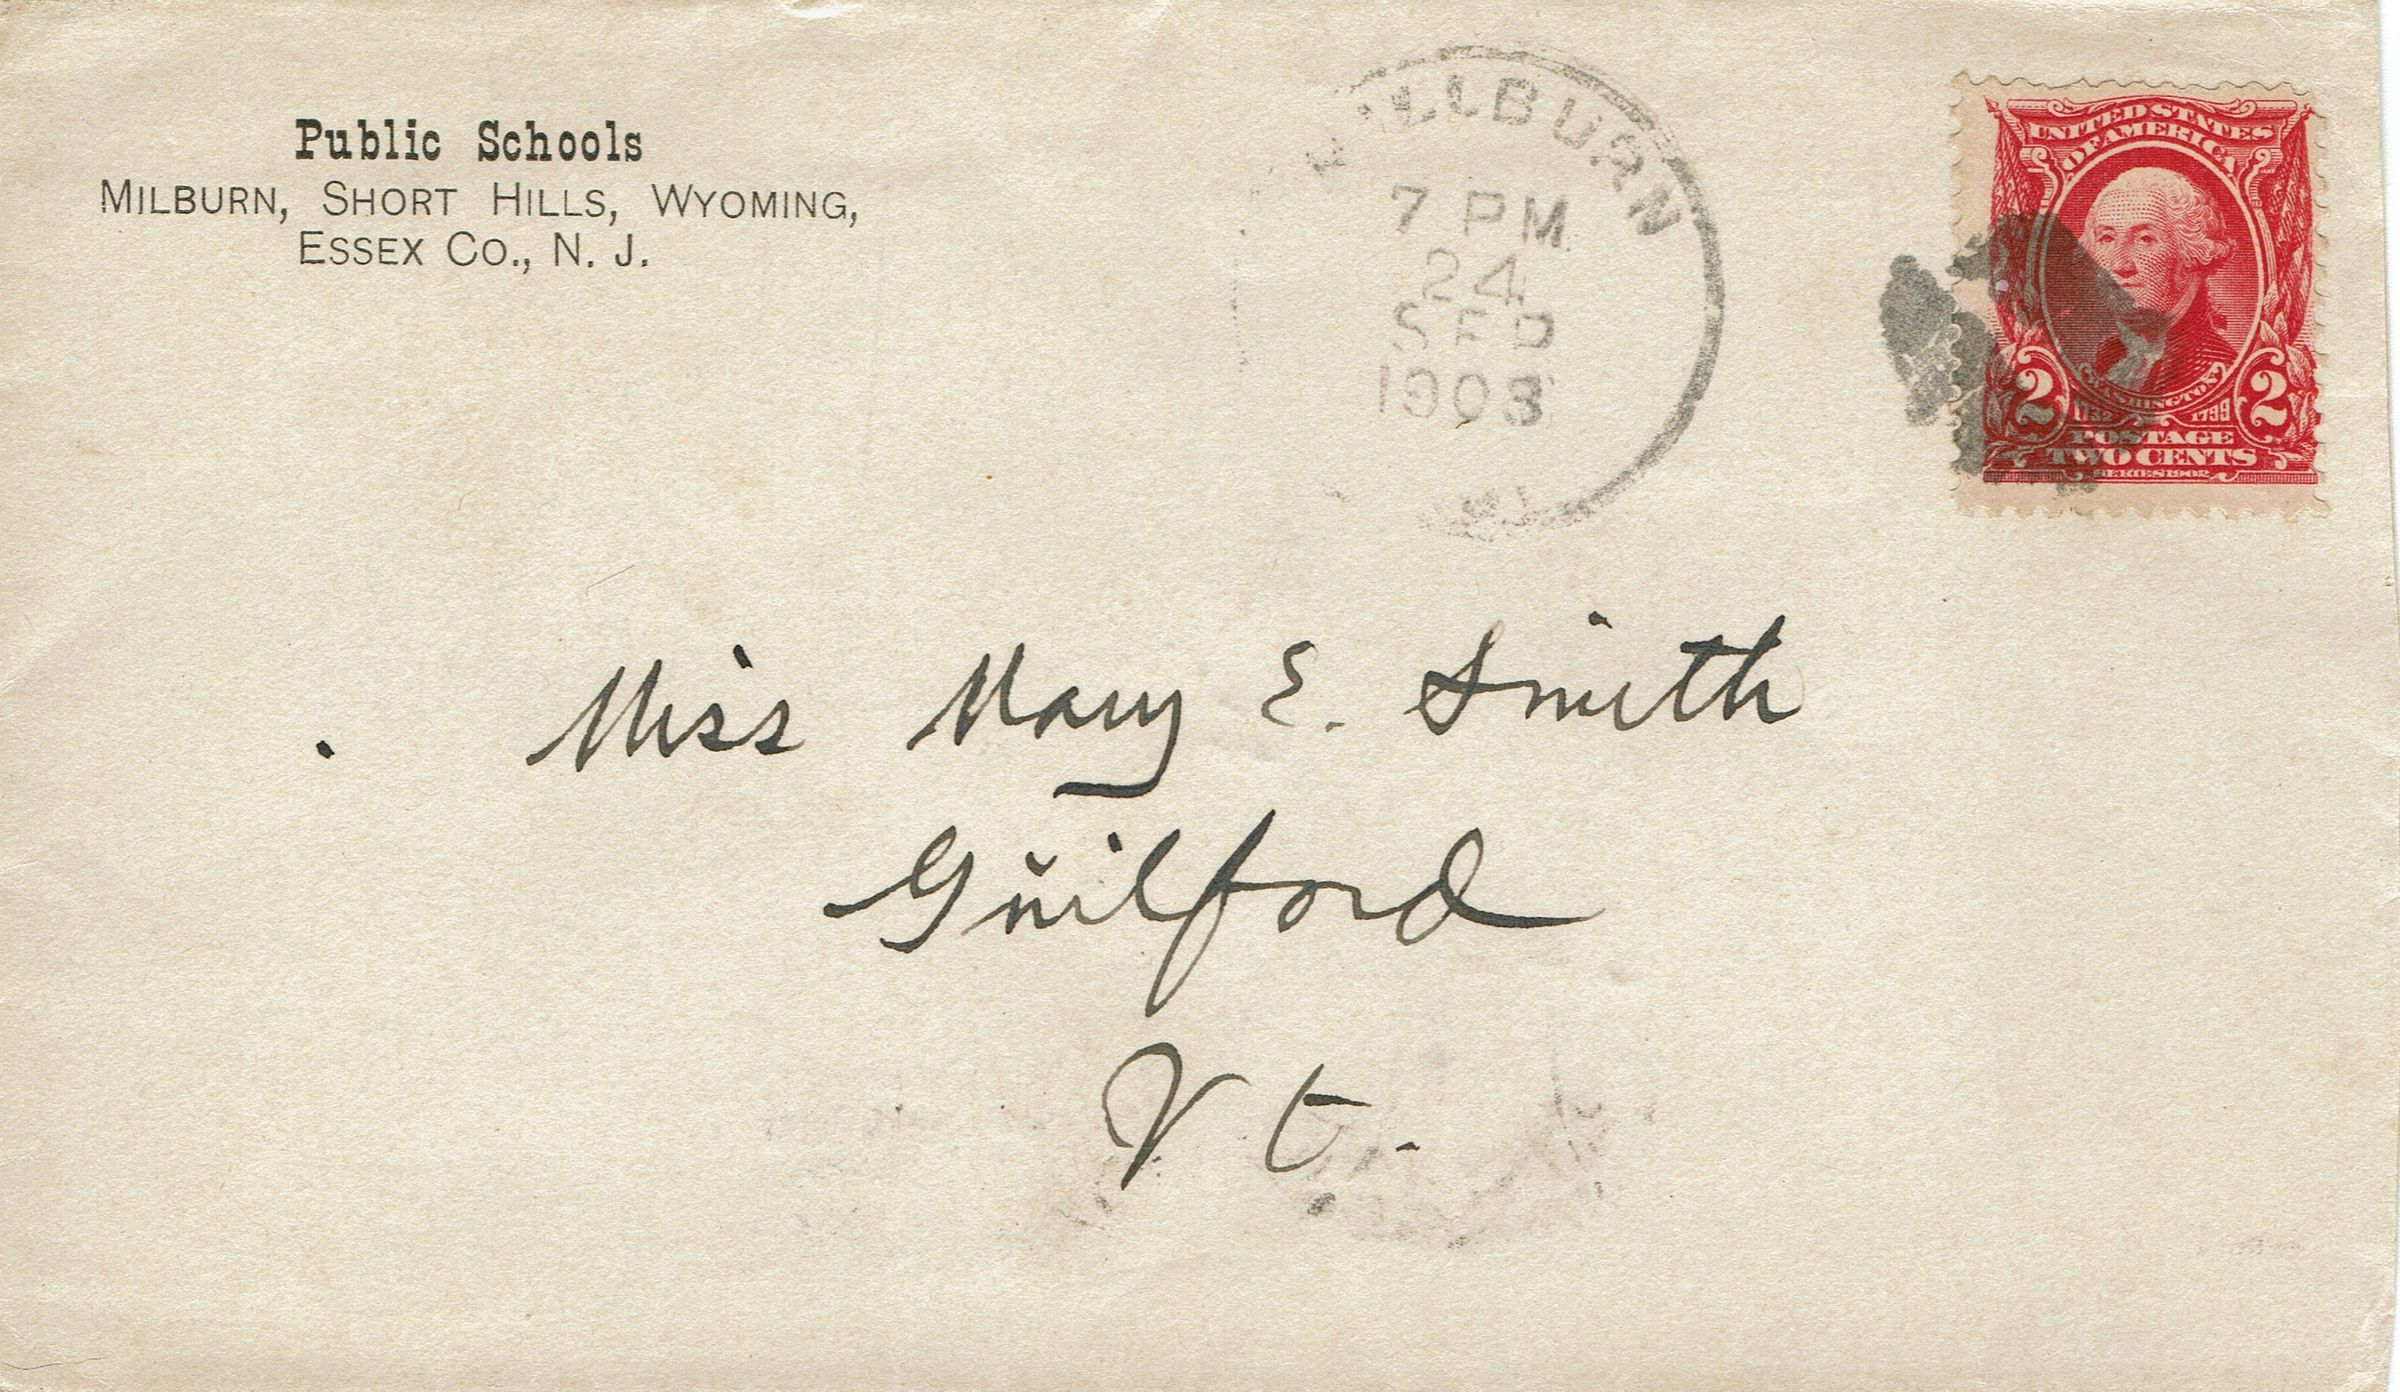 Public Schools
MILBURN, SHORT HILLS, WYOMING,
ESSEX CO., N. J.
MILLBURN
7 PM
24
SEP
1903
UNITED STATES
OF AMERICA
WASHINGTON
2 1732 1799 2
POSTAGE
TWO CENTS
SERIES 1902
Miss Mary E. Smith
Guilford
Vt.